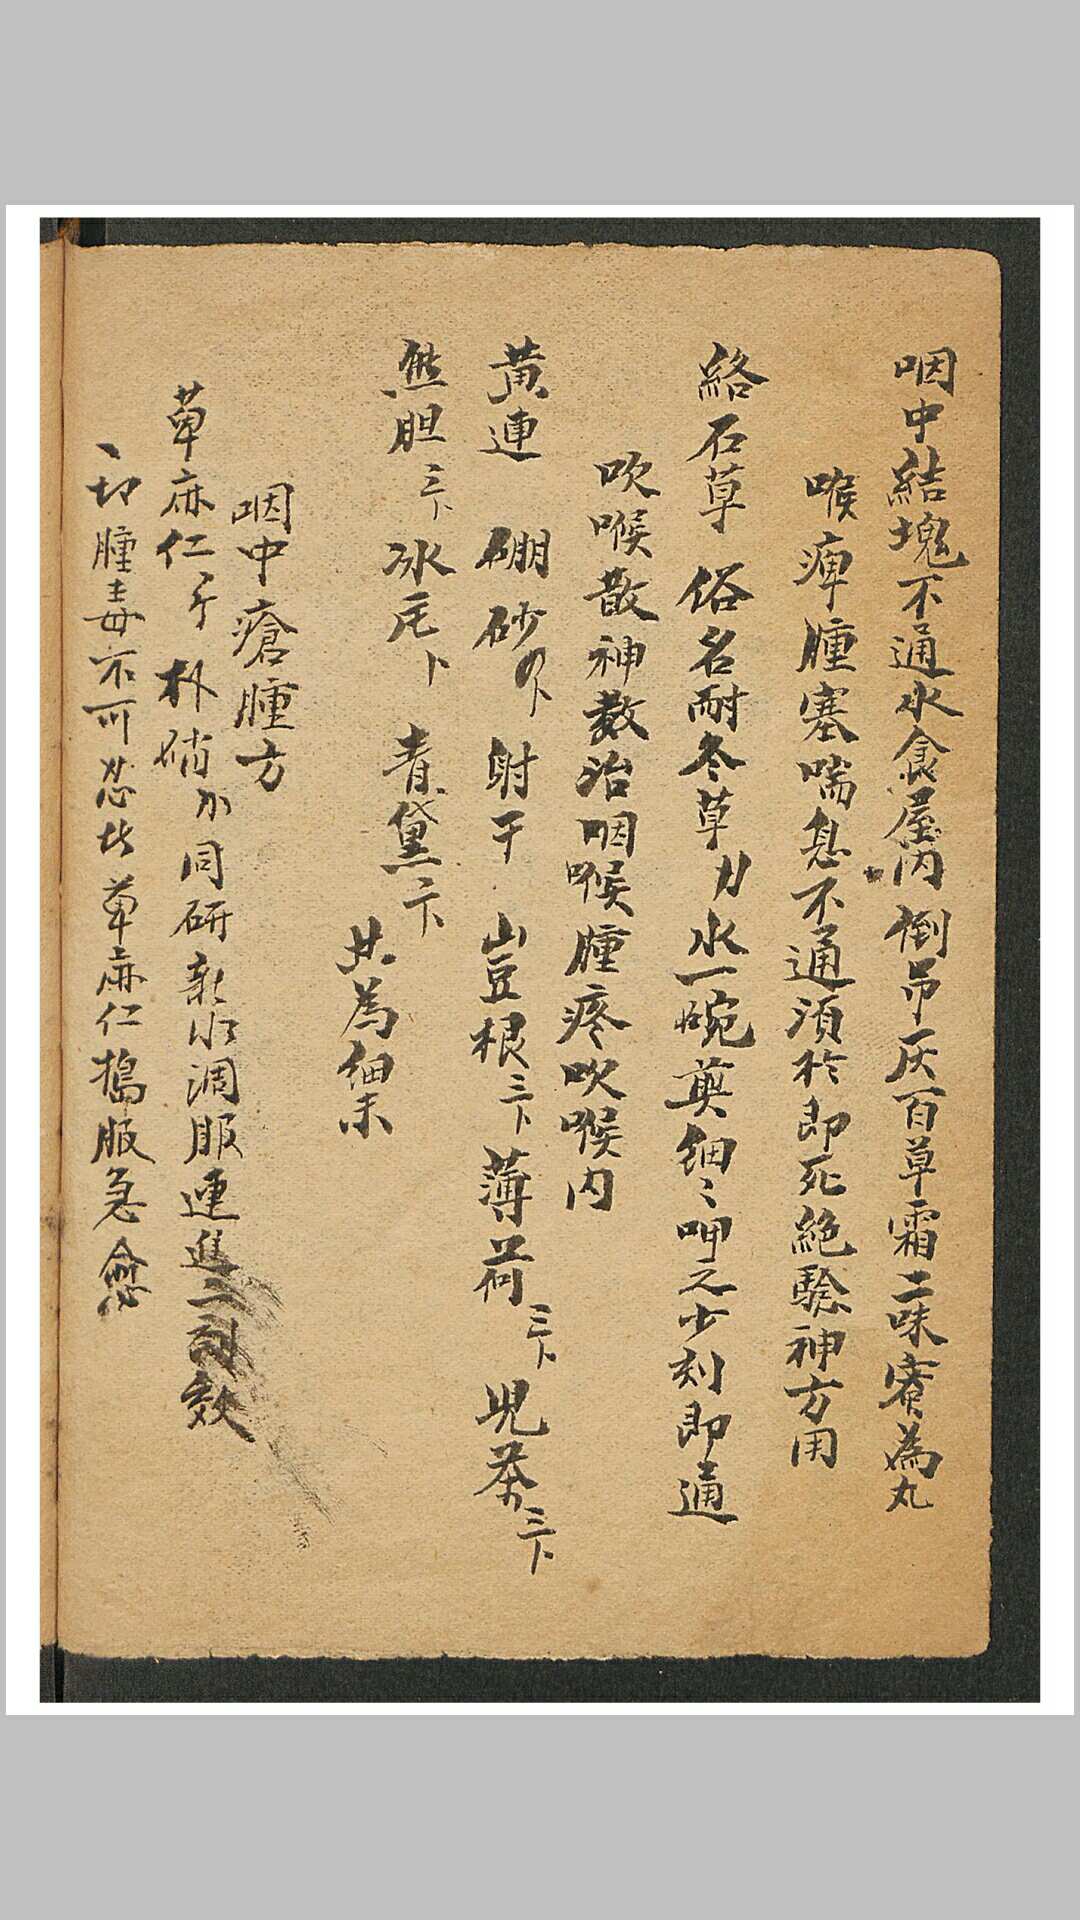 咽中結塊不通水食屋内倒吊灰百草霜二味蜜為丸
喉痺腫塞喘息不通須於即死絕驗神方用
絡石草 俗名耐冬草 水一碗煎細〻呷之少刻即通
吹喉散神教治咽喉腫疼吹喉内
黄連 硼砂 射干 山豆根三卜 薄荷三卜 児茶三卜
熊胆三卜 冰片卜 青黛二卜
共為細末
咽中瘡腫方
草麻仁 朴硝 同研新水調服連進二剂效
一切腫毒不可忍此草麻仁搗服急愈